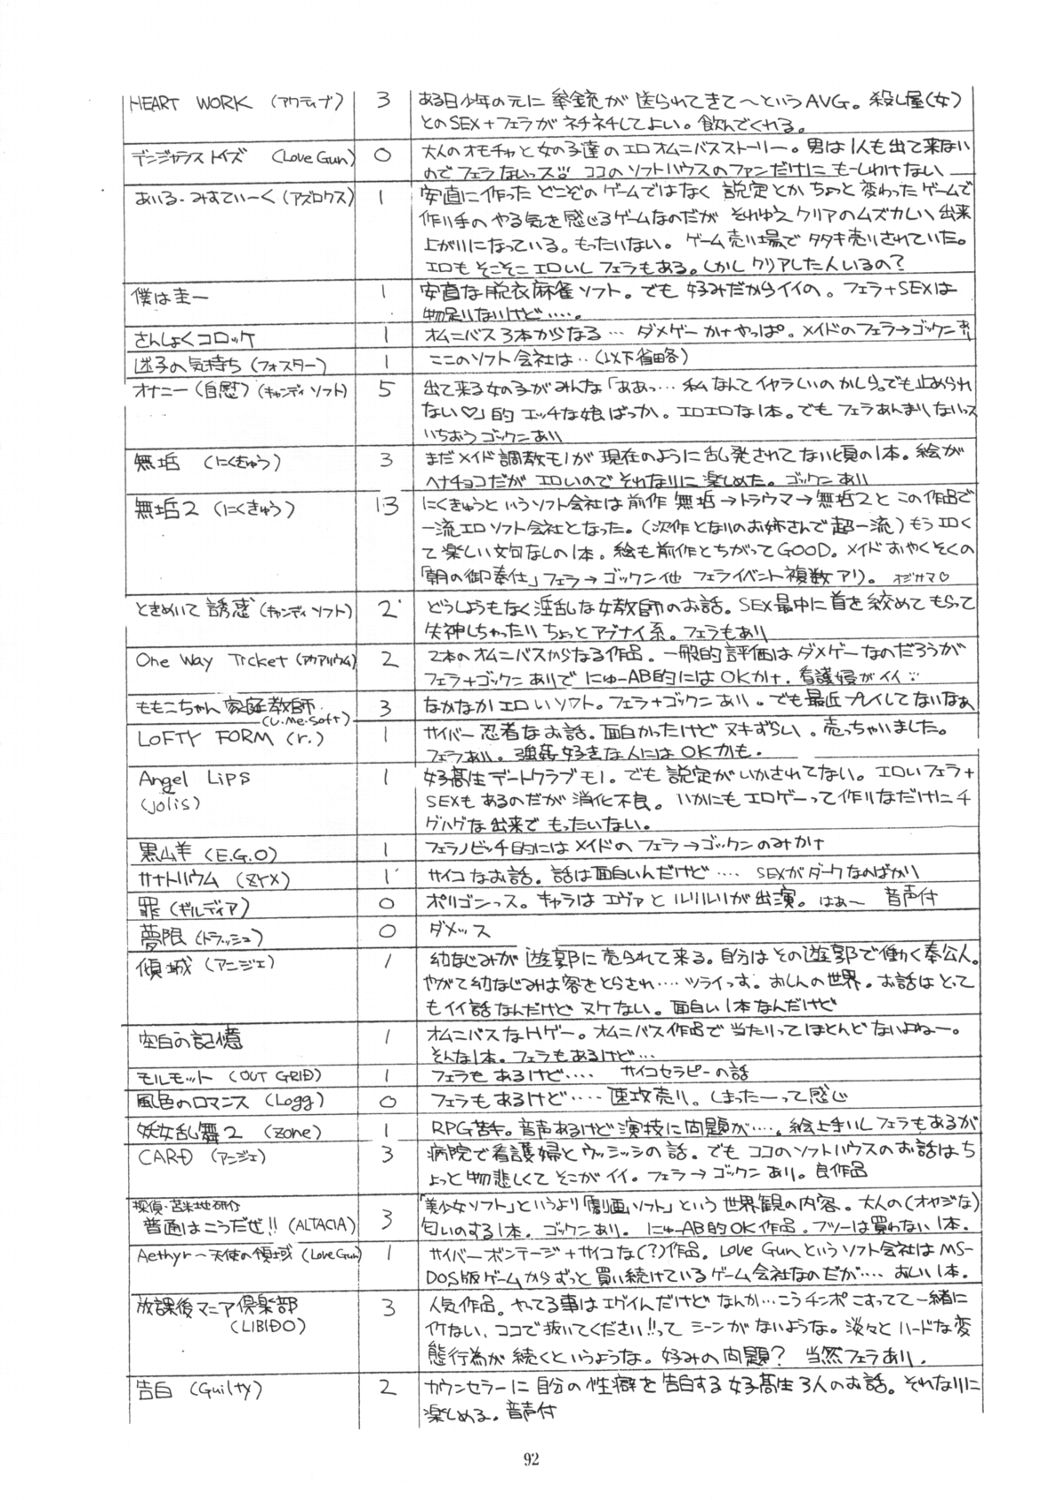 HEART WORK (アクティブ) 3 ある日少年の元に拳銃が送られてきて〜というAVG。殺し屋(女)
とのSEX+フェラがネチネチしてよい。飲んでくれる。
デンジャラストイズ (Love Gun) 0 大人のオモチャと女の子達のエロオムニバスストーリー。男は1人も出て来ない
のでフェラないッス ココのソフトハウスのファンだけにもーしわけない
あいる・みすてぃーく(アズロクス) 1 安直に作ったどこぞのゲームではなく設定とかちょと変わったゲームで
作り手のやる気を感じるゲームなのだがそれゆえクリアのムズカしい出来
上がりになっている。もったいない。ゲーム売り場でタタキ売りされていた。
エロもそこそこエロいしフェラもある。しかしクリアした人いるの?
僕は圭一 1 安直な脱衣麻雀ソフト。でも好みだからイイの。フェラ+SEXは
物足りないけど.....。
さんしょくコロッケ 1 オムニバス3本からなる… ダメゲーかナやっぱ。メイドのフェラ→ゴックン
迷子の気持ち(フォスター) 1 ここのソフト会社は‥(以下省略)
オナニー(自慰)(キャンディソフト) 5 出て来る女の子がみんな「ああっ…私なんてイヤラしいのかしら。でも止められ
ない♡」的エッチな娘ばっか。エロエロな1本。でもフェラあんまりないッス
いちおうゴックンあり
無垢 (にくきゅう) 3 まだメイド調教モノが現在のように乱発されてない頃の1本。絵が
ヘナチョコだがエロいのでそれなりに楽しめた。ゴックンあり
無垢2 (にくきゅう) 13 にくきゅうというソフト会社は前作無垢→トラウマ→無垢2とこの作品で
一流エロソフト会社となった。(次作となりのお姉さんで超一流)もうエロく
て楽しい文句なしの1本。絵も前作とちがってGOOD。メイドおやくそくの
「朝の御奉仕」フェラ→ゴックン他 フェライベント複数アリ。オジサマ♡
ときめいて誘惑(キャンディソフト) 2 どうしようもなく淫乱な女教師のお話。SEX最中に首を絞めてもらって
失神しちゃったりちょっとアブナイ系。フェラもあり
One Way Ticket (アカアリウム) 2 2本のオムニバスからなる作品。一般的評価はダメゲーなのだろうが
フェラ+ゴックンありでにゅーAB的にはOKかナ。看護婦がイイ
ももこちゃん家庭教師 (U・Me・Soft) 3 なかなかエロいソフト。フェラ+ゴックンあり。でも最近プレイしてないなぁ
LOFTY FORM (r.) 1 サイバー忍者なお話。面白かったけどヌキずらい。売っちゃいました。
フェラあり。強姦好きな人にはOKかも。
Angel Lips 1
(Jolis)
黒山羊 (E.G.O) 1 フェラノビッチ的にはメイドのフェラ→ゴックンのみかナ
サナトリウム (ZYX) 1 サイコなお話。話は面白いんだけど…. SEXがダークなのばかり
罪(ギルディア) 0 ポリゴンっス。キャラはエヴァとルリルリが出演。はぁー 音声付
夢限(トラッシュ) 0 ダメッス
傾城 (アンジェ) 1 幼なじみが遊郭に売られて来る。自分はその遊郭で働く奉公人。
やがて幼なじみは客をとらされ‥‥ツライっす。おしんの世界。お話はとって
もイイ話なんだけどヌケない。面白い1本なんだけど
空白の記憶 1 オムニバスなHゲー。オムニバス作品で当たりってほとんどないよねー。
そんな1本。フェラもあるけど…
モルモット (OUT GRID) 1 フェラもあるけど…. サイコセラピーの話
風色のロマンス (Logg) 0 フェラもあるけど‥‥速攻売り。しまったーって感じ
妖女乱舞2 (Zone) 1 RPG苦手。音声あるけど演技に問題が….。絵上手いしフェラもあるが
CARD (アンジェ) 3 病院で看護婦とウッシッシの話。でもココのソフトハウスのお話はち
ょっと物悲しくてそこがイイ。フェラ→ゴックンあり。良作品
探偵・苫米地研介
普通はこうだぜ!! (ALTACIA) 3 「美少女ソフト」というより「劇画ソフト」という世界観の内容。大人の(オヤジな)
匂いのする1本。ゴックンあり。にゅーAB的OK作品。フツーは買わない1本。
Aethyr〜天使の領域(Love Gun) 1 サイバーボンテージ+サイコな(?)作品。Love Gunというソフト会社はMS-
DOS版ゲームからずっと買い続けているゲーム会社なのだが‥‥おしい1本。
放課後マニア倶楽部 3
(LIBIDO)
告白 (Guilty) 2
92